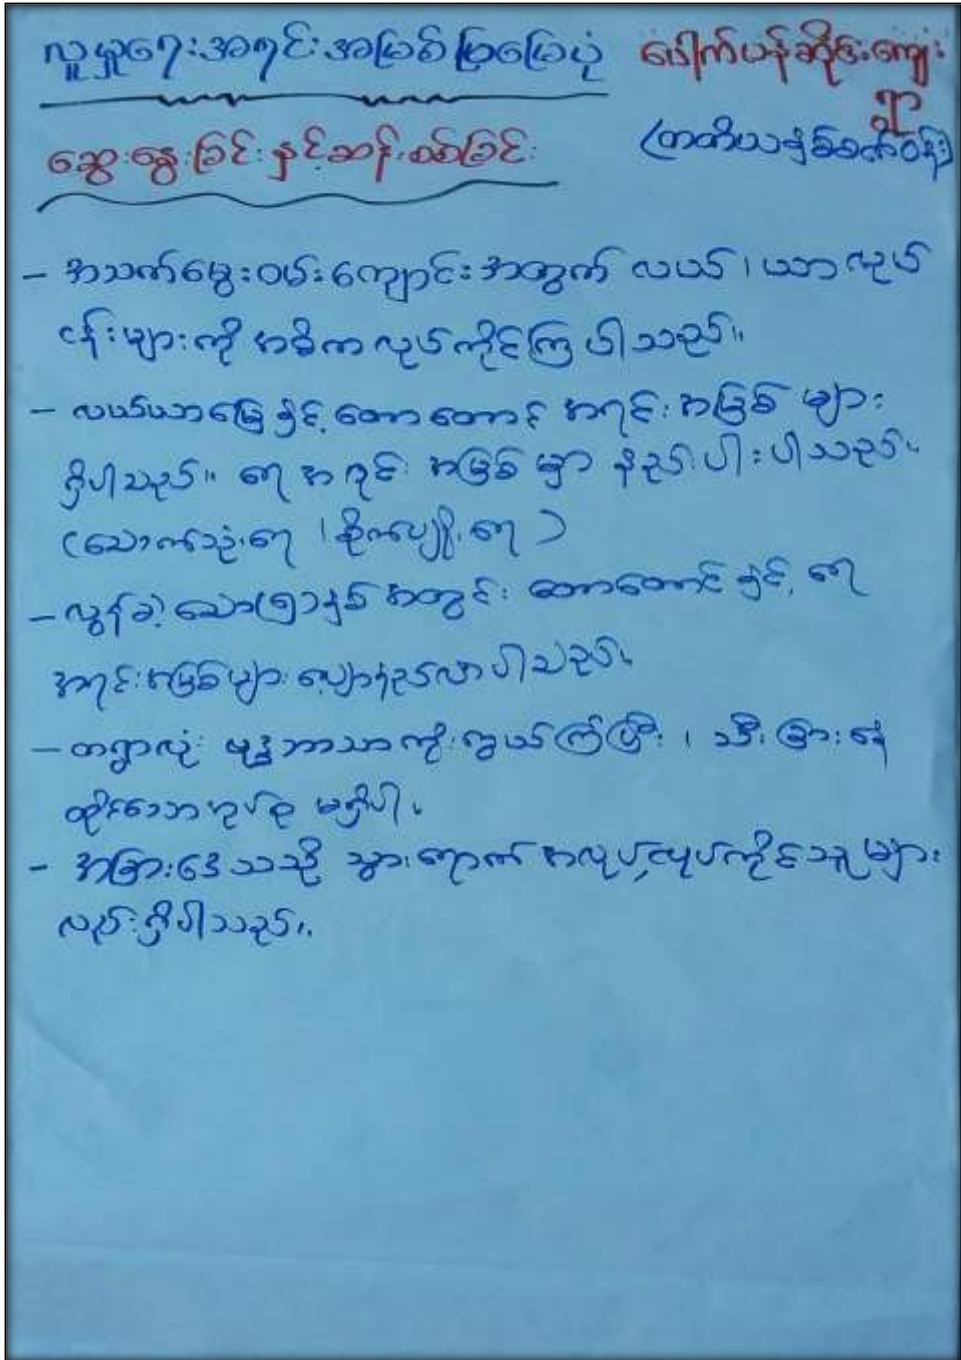 လူမှုရေးအရင်းအမြစ်ပြမြေပုံ ပေါက်ပန်ဆိုင်းကျေး
ရွာ
ဆွေးနွေးခြင်းနှင့်ဆန်းစစ်ခြင်း (တတိယနှစ်စက်ဝန်း)
- အသက်မွေးဝမ်းကျောင်းအတွက် လယ်၊ ယာလုပ်
ငန်းများကို အဓိကလုပ်ကိုင်ကြပါသည်။
- လယ်ယာမြေနှင့် တောတောင် အရင်းအမြစ်များ
ရှိပါသည်။ ရေအရင်းအမြစ်မှာ နည်းပါးပါသည်။
(သောက်သုံးရေ၊ စိုက်ပျိုးရေ)
- လွန်ခဲ့သော(၅)နှစ်အတွင်း တောတောင်နှင့် ရေ
အရင်းအမြစ်များလျော့နည်းလာပါသည်။
- တရွာလုံး ဗုဒ္ဓဘာသာကိုးကွယ်ကြပြီး၊ သီးခြားနေ
ထိုင်သောအုပ်စု မရှိပါ။
- အခြားဒေသသို့ သွားရောက်အလုပ်လုပ်ကိုင်သူများ
လည်းရှိပါသည်။